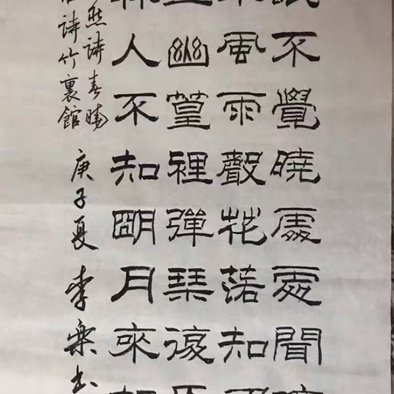 不覺曉處處聞
來風雨聲花落知
坐幽篁裡彈琴復
林人不知明月來
然詩春曉
詩竹裏館
庚子夏李樂书